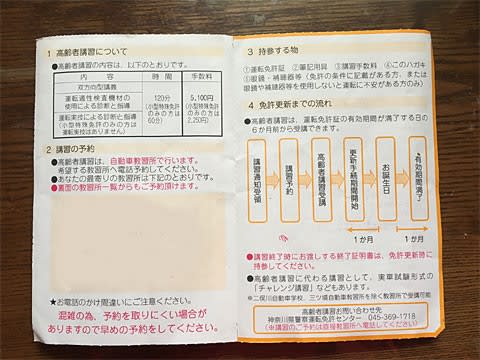 1 高齢者講習について
●高齢者講習の内容は、以下のとおりです。
内容 時間 手数料
双方向型講義
運転適性検査機材の
使用による診断と指導
運転実技による診断と指導
(小型特殊免許のみの方は
運転実技はありません)
120分
(小型特殊免許
のみの方は
60分)
5,100円
(小型特殊免許
のみの方は
2,250円)
2 講習の予約
●高齢者講習は、自動車教習所で行います。
希望する教習所へ電話予約してください。
●あなたの最寄りの教習所は下記のとおりです。
●裏面の教習所一覧からもご予約頂けます。
★お電話のかけ間違いにご注意ください。
混雑の為、予約を取りにくい場合が
ありますので早めの予約をしてください。
3 持参する物
①運転免許証 ②筆記用具 ③講習手数料 ④このハガキ
⑤眼鏡・補聴器等(免許の条件に記載がある方、または
眼鏡や補聴器等を使用しないと運転に不安がある方のみ)
4 免許更新までの流れ
●高齢者講習は、運転免許証の有効期間が満了する日の
6か月前から受講できます。
講習通知受領
講習予約
高齢者講習受講
更新手続期間開始
お誕生日
有効期間満了
1か月 1か月
●講習終了時にお渡しする終了証明書は、免許更新時に
持参してください。
●高齢者講習に代わる講習として、実車試験形式の
「チャレンジ講習」などもあります。
※二俣川自動車学校、三ツ境自動車教習所を除く教習所で受講可能
高齢者講習お問い合わせ先
神奈川県警察運転免許センター 045-369-1718
(※講習のご予約は直接教習所へ電話してください)